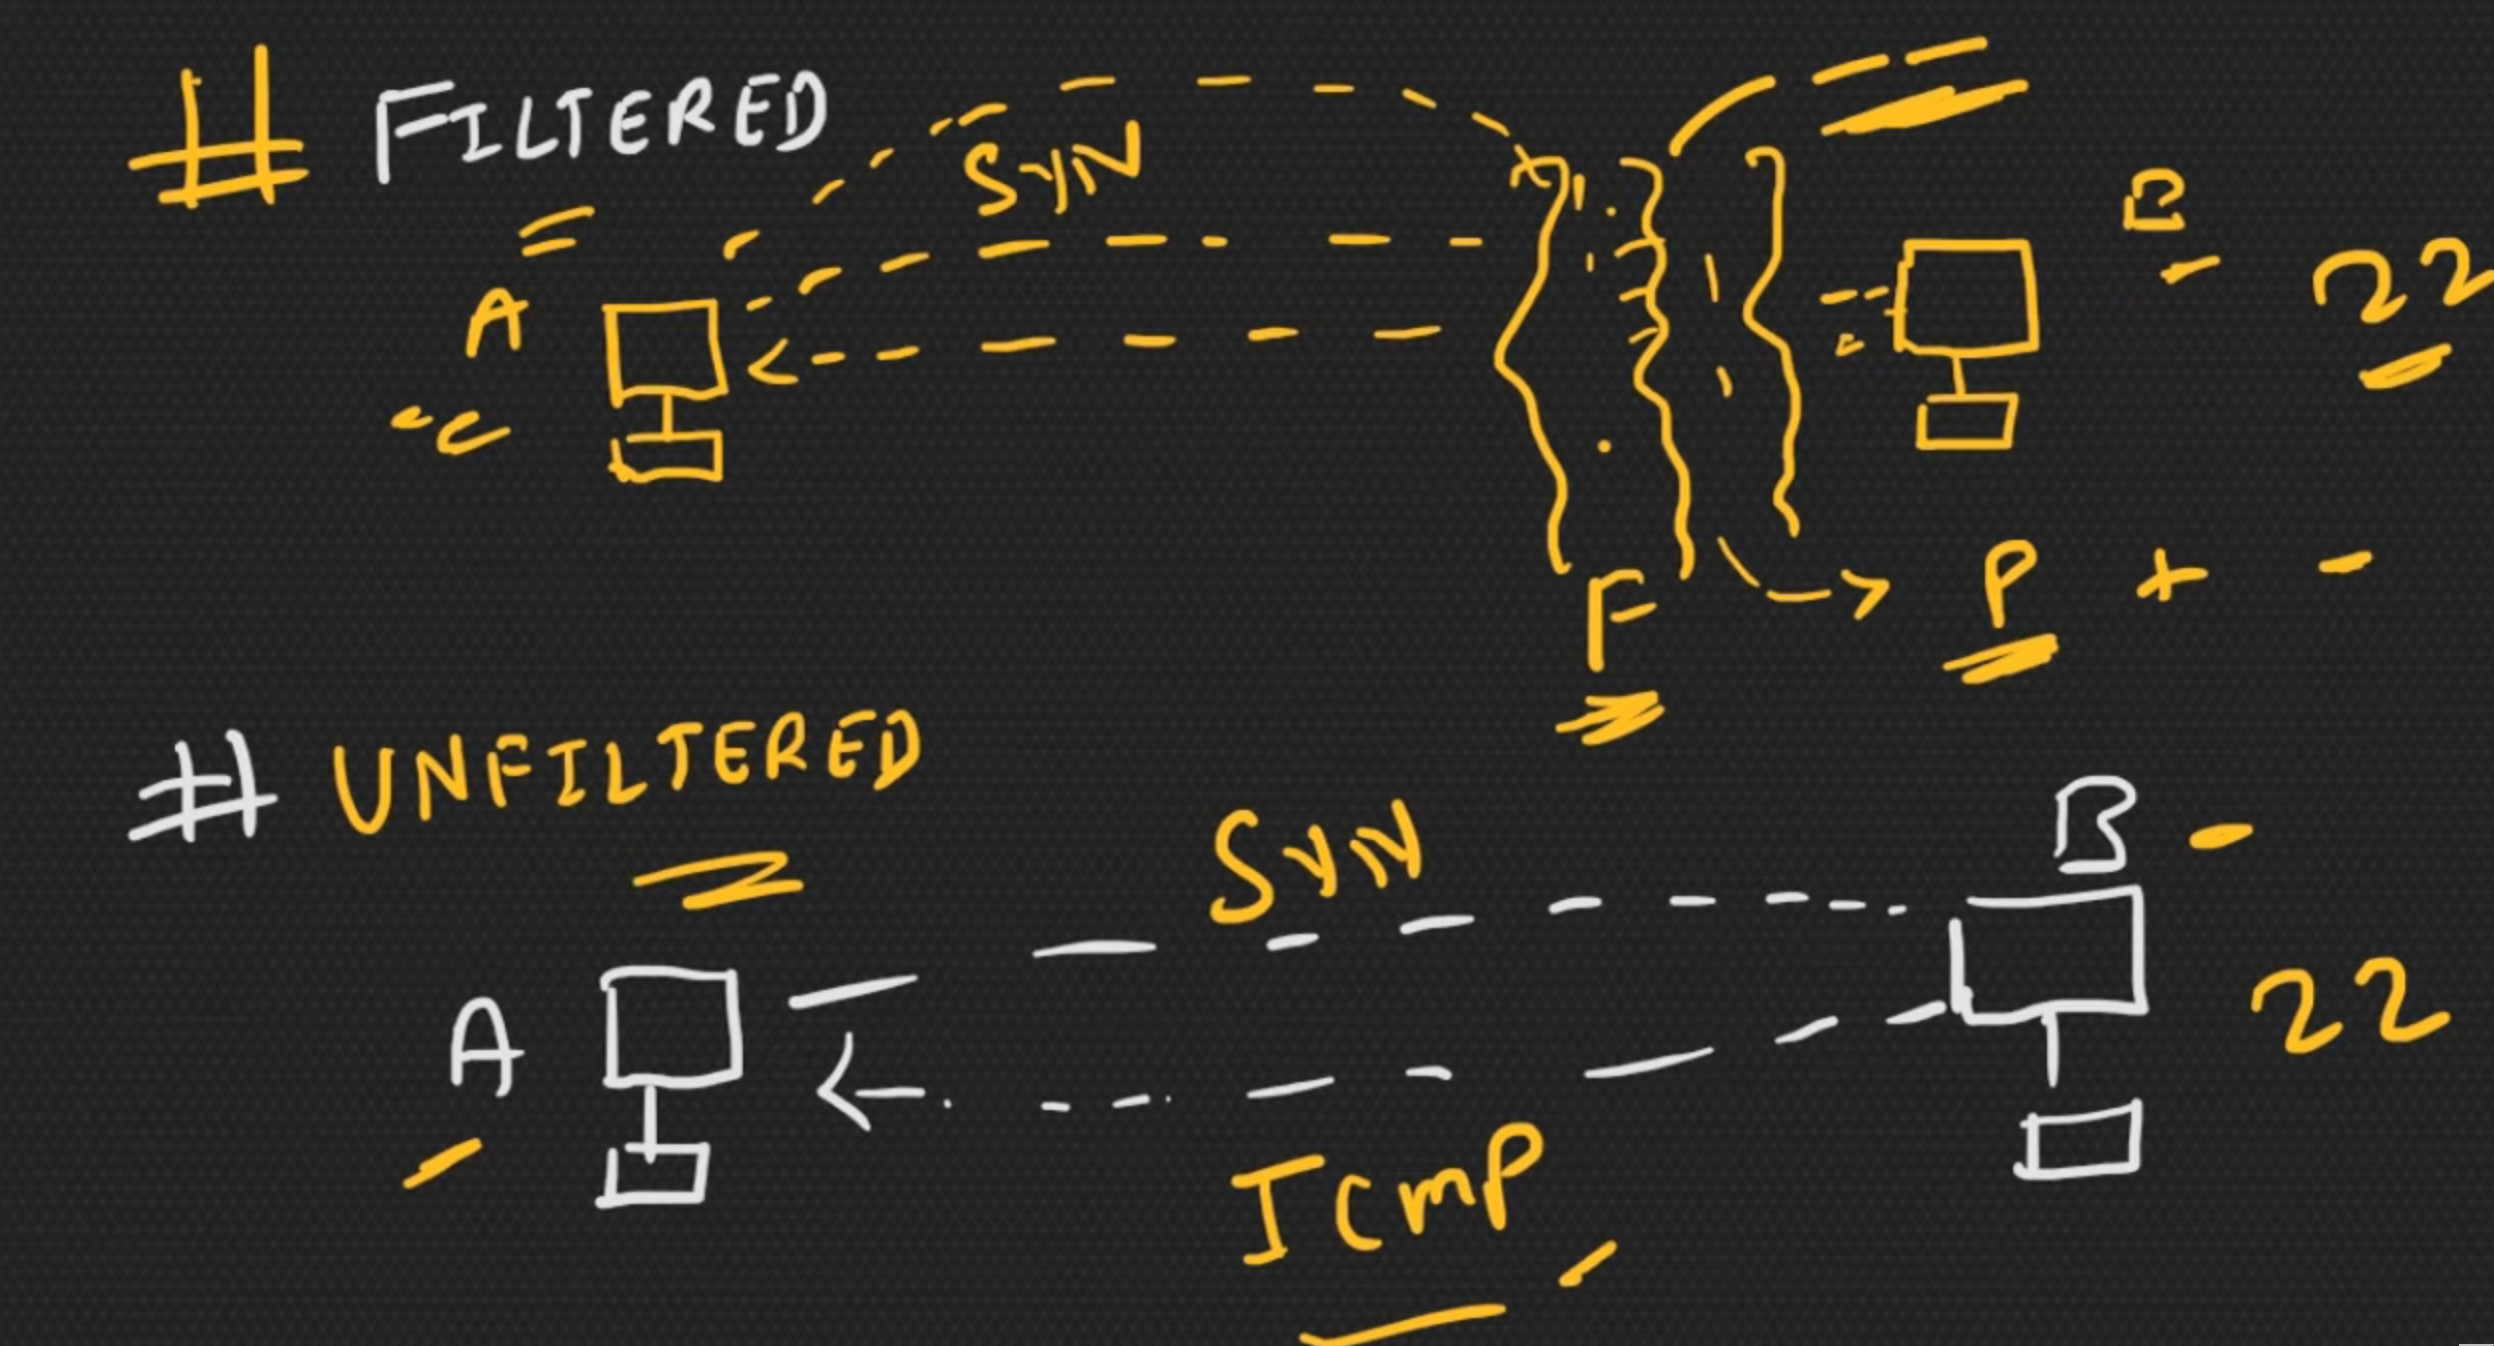 # FILTERED
SYN
B
22
A
F
P + -
# UNFILTERED
SYN
B -
A
22
ICMP